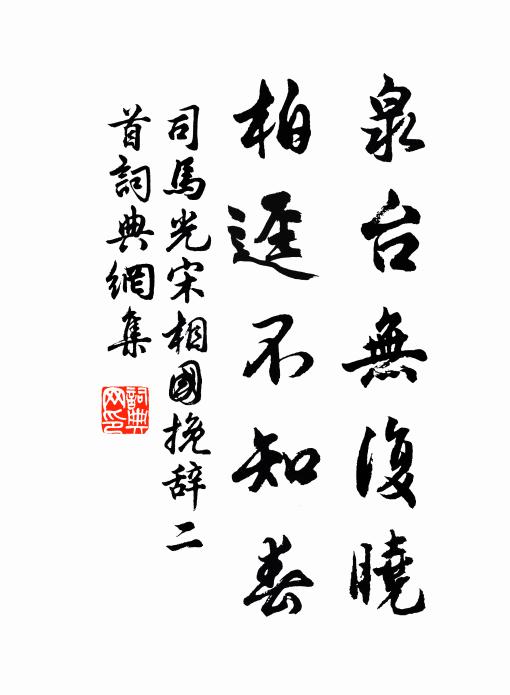 泉台無復曉
柏逕不知春
司馬光宋相國挽辞二
首詞典網集
詞典
网印